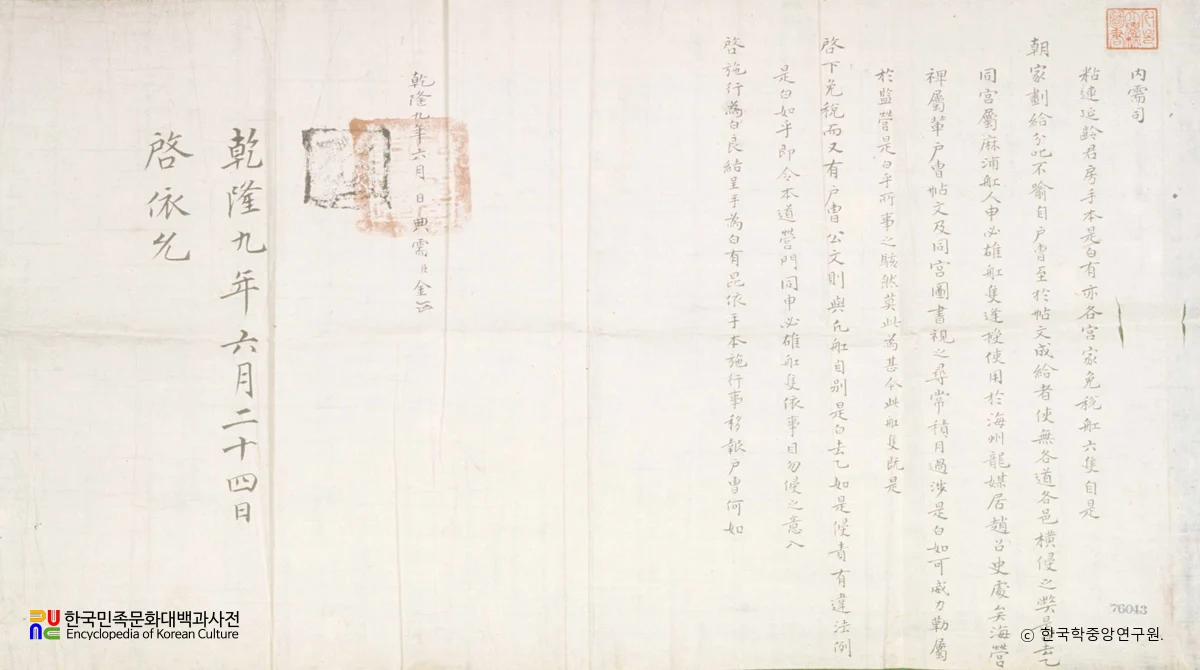 內需司
粘連延齡君房手本是白有亦各宮家免稅舡六隻自是
朝家劃給分叱不喩自戶曹至於帖文成給者使無各道各邑橫侵之弊是去乙
同宮屬麻浦舡人申必雄舡隻逢授使用於海州龍媒居趙召史處矣海營
裨屬輩戶曹帖文及同宮圖書視之尋常積月過涉是白如可威力勒屬
於監營是白乎所事之駭然莫此爲甚今此舡隻旣是
啓下免稅而又有戶曹公文則與凡舡自別是白去乙如是侵責有違法例
是白如乎卽令本道營門同申必雄舡隻依事目勿侵之意入
啓施行爲白良結呈手爲白有昆依手本施行事移報戶曹何如
乾隆九年六月 日典需臣金
乾隆九年六月二十四日
啓依允
76043
한국민족문화대백과사전
Encyclopedia of Korean Culture
© 한국학중앙연구원.